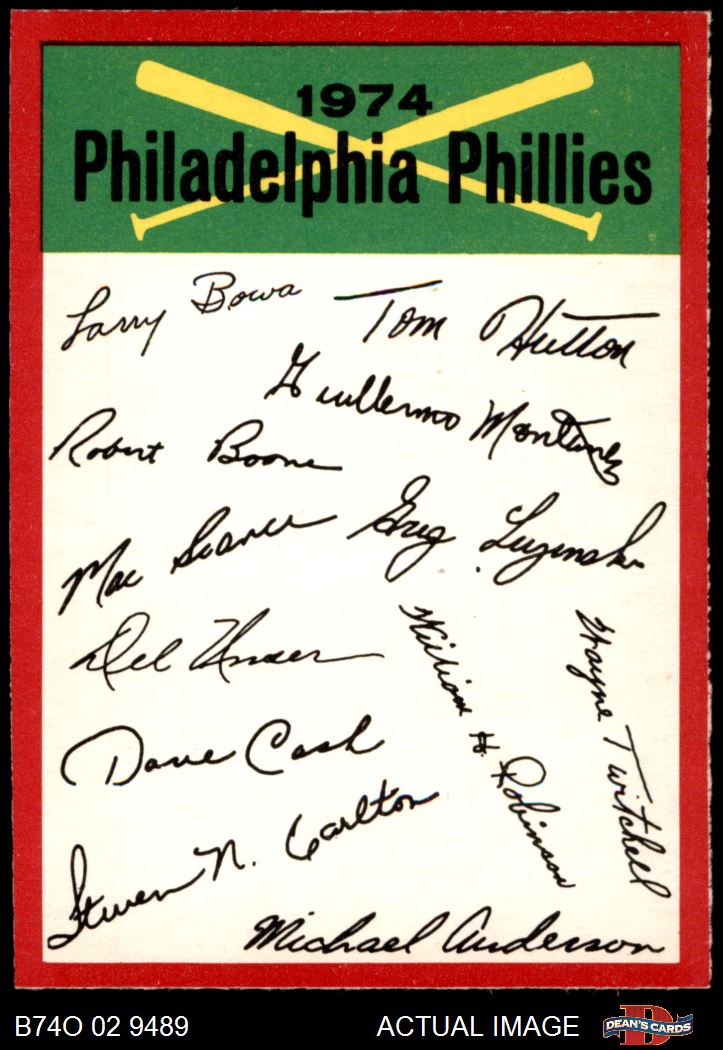 1974
Philadelphia Phillies
Larry Bowa
Tom Hutton
Guillermo Montanez
Robert Boone
Mac Scarce
Greg Luzinski
Del Unser
William H. Robinson
Wayne Twitchell
Dave Cash
Steven N. Carlton
Michael Anderson
B74O 02 9489
ACTUAL IMAGE
DEAN'S CARDS